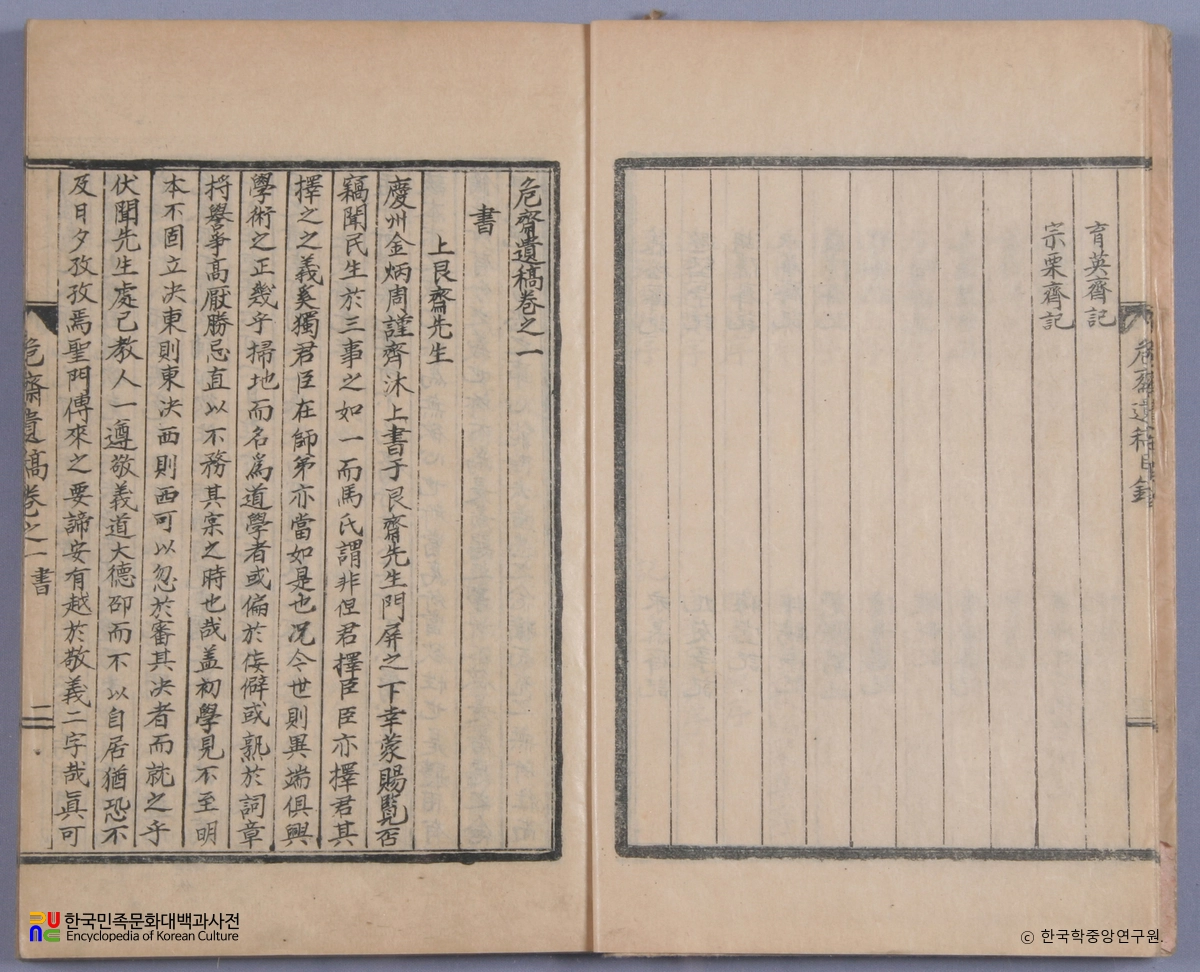 育英齊記
宗栗齊記
危齋遺稿目錄
危齋遺稿卷之一
書
上艮齋先生
慶州金炳周謹齊沐上書于艮齋先生門屏之下幸蒙賜覽否
竊聞民生於三事之如一而馬氏謂非但君擇臣臣亦擇君其
擇之之義奚獨君臣在師弟亦當如是也况今世則異端俱興
學術之正幾乎掃地而名爲道學者或偏於倿僻或熟於詞章
捋譽爭高厭勝忌直以不務其宲之時也哉盖初學見不至明
本不固立决東則東决西則西可以忽於審其决者而就之乎
伏聞先生處己教人一遵敬義道大德卲而不以自居猶恐不
及日夕孜孜焉聖門傳來之要諦安有越於敬義二字哉眞可
危齋遺稿卷之一 書 二
한국민족문화대백과사전
Encyclopedia of Korean Culture
ⓒ 한국학중앙연구원.